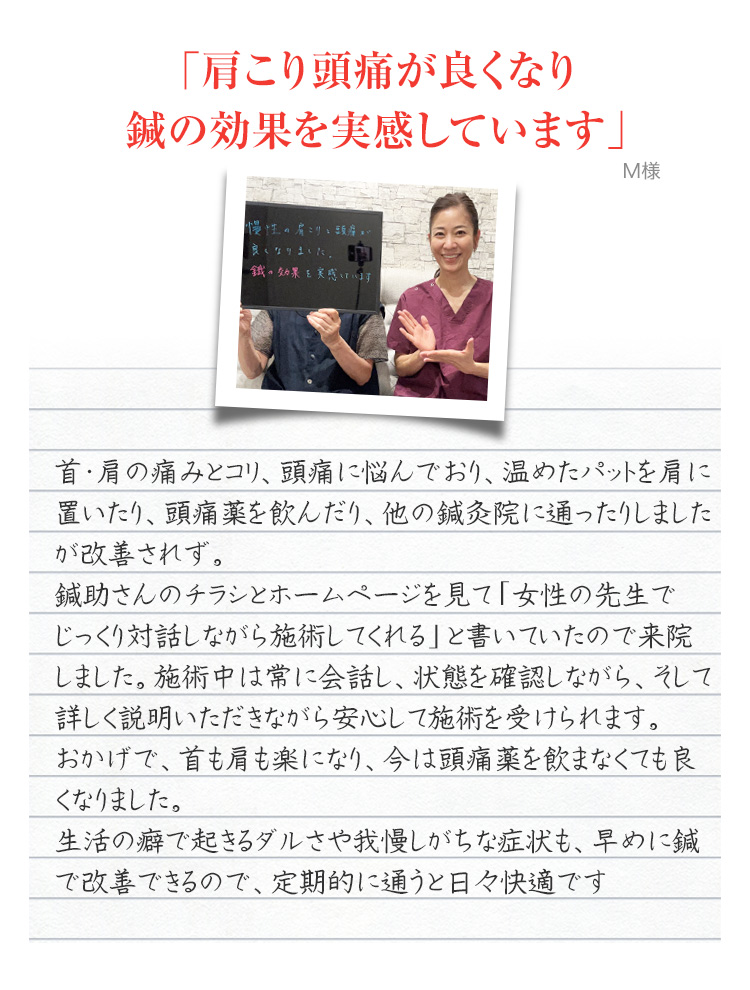 「肩こり頭痛が良くなり
鍼の効果を実感しています」
M様
慢性の肩こりと頭痛が
良くなりました。
鍼の効果を実感しています
首・肩の痛みとコリ、頭痛に悩んでおり、温めたパットを肩に
置いたり、頭痛薬を飲んだり、他の鍼灸院に通ったりしました
が改善されず。
鍼助さんのチラシとホームページを見て「女性の先生で
じっくり対話しながら施術してくれる」と書いていたので来院
しました。施術中は常に会話し、状態を確認しながら、そして
詳しく説明いただきながら安心して施術を受けられます。
おかげで、首も肩も楽になり、今は頭痛薬を飲まなくても良
くなりました。
生活の癖で起きるダルさや我慢しがちな症状も、早めに鍼
で改善できるので、定期的に通うと日々快適です